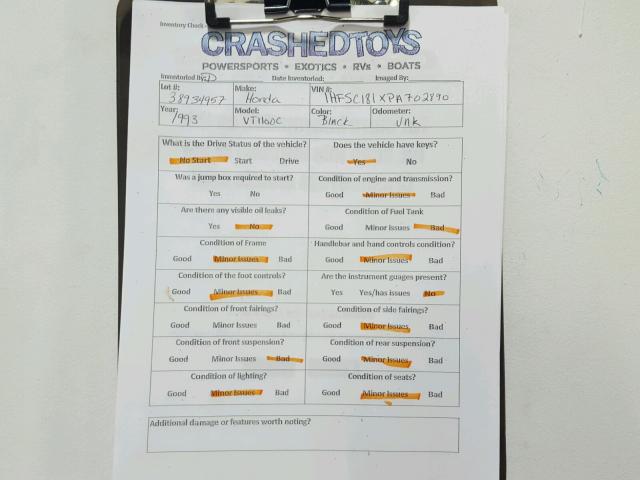 Inventory Check -
CRASHEDTOYS
POWERSPORTS * EXOTICS * RVs * BOATS
Inventoried By: D Date Inventoried: Imaged By:
Lot #: Make: VIN #:
38934957 Honda 1HFSC181XPA702890
Year: Model: Color: Odometer:
1993 VT1100C Black Unk
What is the Drive Status of the vehicle? Does the vehicle have keys?
No Start Start Drive Yes No
Was a jump box required to start? Condition of engine and transmission?
Yes No Good Minor Issues Bad
Are there any visible oil leaks? Condition of Fuel Tank
Yes No Good Minor issues Bad
Condition of Frame Handlebar and hand controls condition?
Good Minor Issues Bad Good Minor Issues Bad
Condition of the foot controls? Are the instrument guages present?
Good Minor Issues Bad Yes Yes/has issues No
Condition of front fairings? Condition of side fairings?
Good Minor Issues Bad Good Minor Issues Bad
Condition of front suspension? Condition of rear suspension?
Good Minor Issues Bad Good Minor Issues Bad
Condition of lighting? Condition of seats?
Good Minor Issues Bad Good Minor Issues Bad
Additional damage or features worth noting?